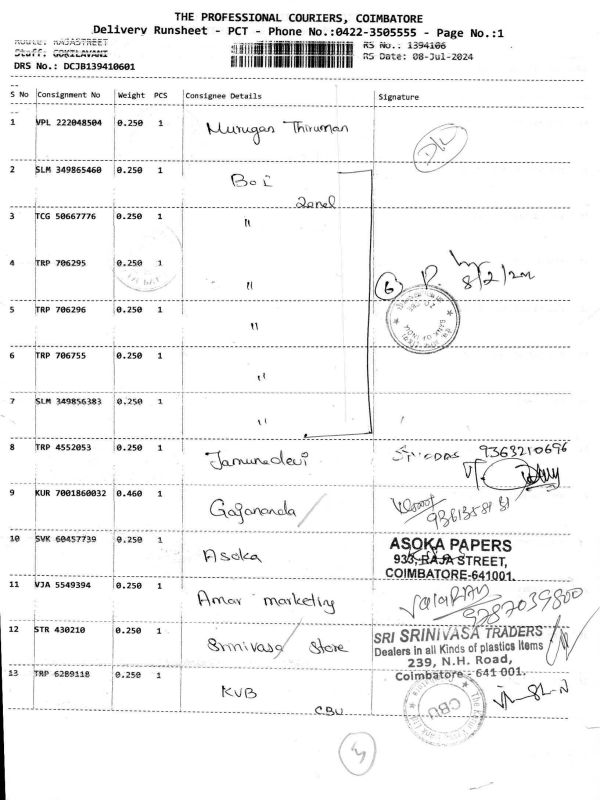 THE PROFESSIONAL COURIERS, COIMBATORE
Delivery Runsheet - PCT - Phone No.:0422-3505555 - Page No.:1
Route: RAJASTREET
Staff: GOKILAVANI
DRS No.: DCJB139410601
RS No.: 1394106
RS Date: 08-Jul-2024
S No Consignment No Weight PCS Consignee Details Signature
1 VPL 222048504 0.250 1 Murugan Thiruman D/L
2 SLM 349865460 0.250 1 BOI
Zonal
3 TCG 50667776 0.250 1 "
4 TRP 706295 0.250 1 "
6
5 TRP 706296 0.250 1 "
BANK OF INDIA
6 TRP 706755 0.250 1 "
7 SLM 349856383 0.250 1 "
8 TRP 4552053 0.250 1 Jamunadevi 9363210696
9 KUR 7001860032 0.460 1 Gajananda
10 SVK 60457739 0.250 1 Asoka
ASOKA PAPERS
933, RAJA STREET,
COIMBATORE-641001.
11 VJA 5549394 0.250 1 Amar marketing
9787039800
12 STR 430210 0.250 1 Srinivasa Store
SRI SRINIVASA TRADERS
Dealers in all Kinds of plastics Items
239, N.H. Road,
Coimbatore - 641 001.
13 TRP 6289118 0.250 1 KVB
CBU
CBU
3